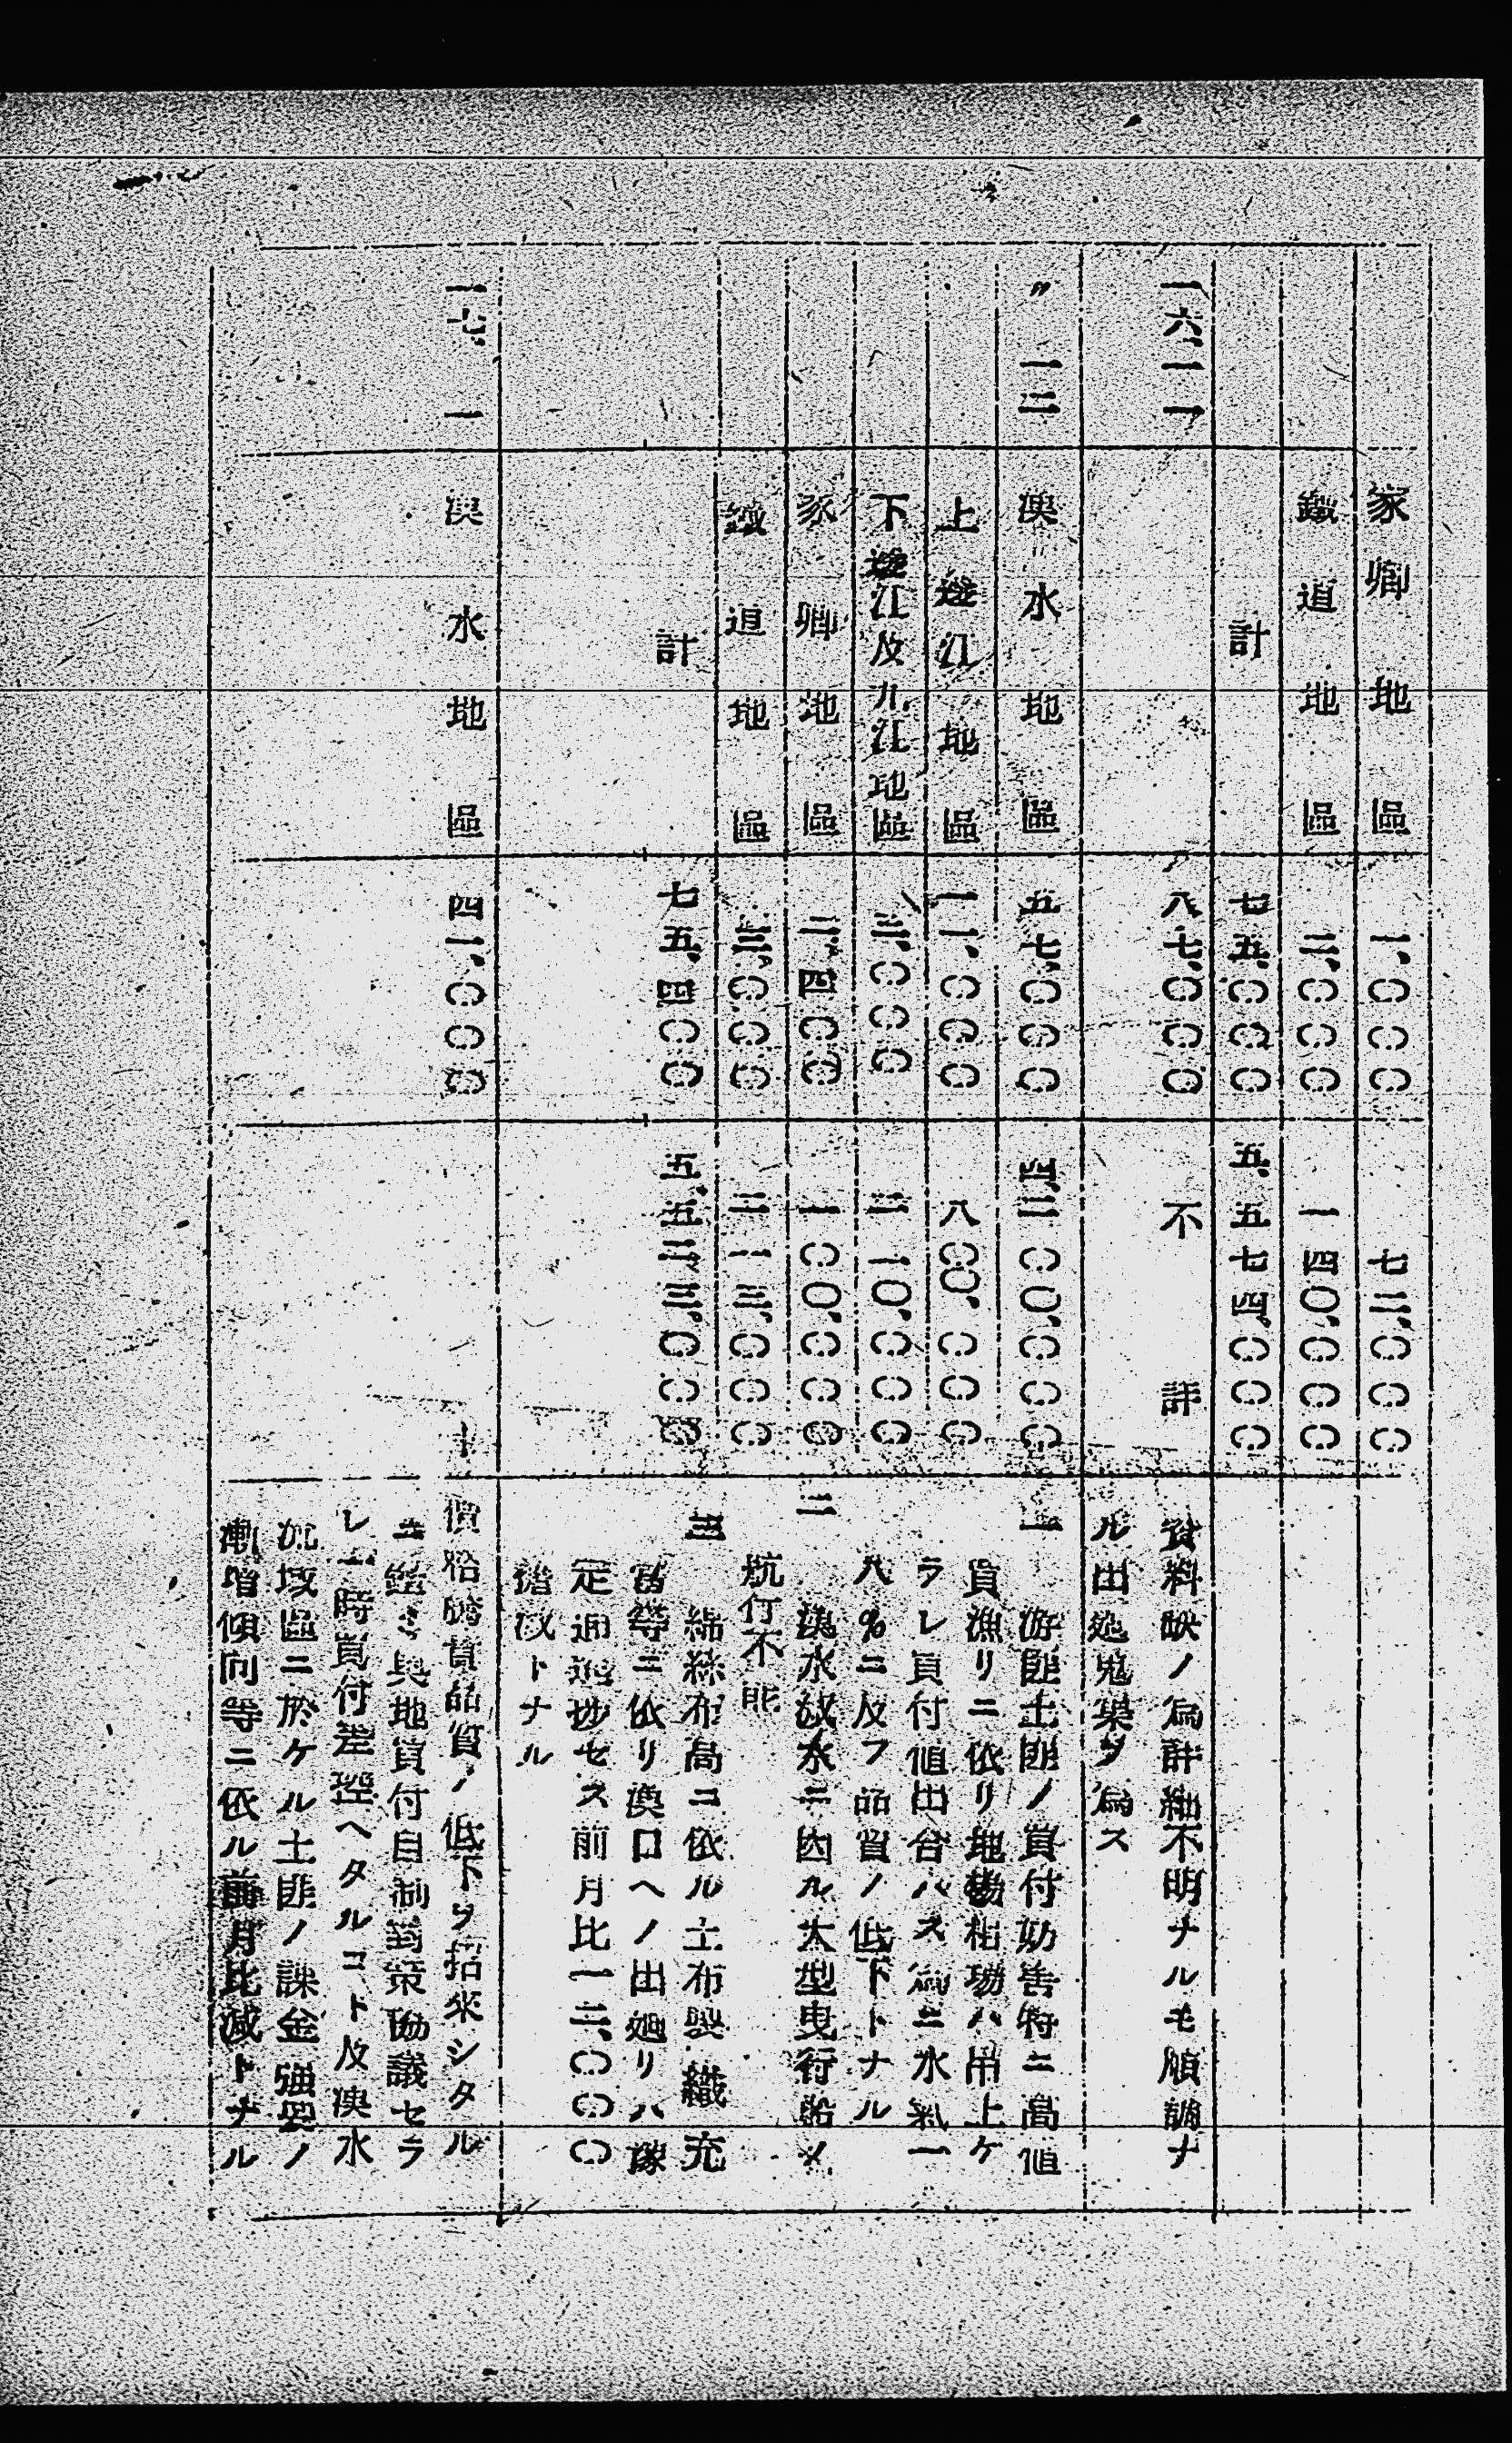 家鄕地區 一、〇〇〇 七二、〇〇〇
鐵道地區 二、〇〇〇 一四〇、〇〇〇
計 七五、〇〇〇 五、五七四、〇〇〇
一六、一一 八七、〇〇〇 不詳 資料缺ノ爲詳細不明ナルモ順調ナ
ル出廻蒐集ヲ爲ス
〃 一二 漢水地區 五七、〇〇〇 四、二〇〇、〇〇〇 一 游匪土匪ノ買付妨害特ニ高値
買漁リニ依リ地場相場ハ吊上ケ
上遊江地區 一一、〇〇〇 八〇〇、〇〇〇 ラレ買付値出合ハス爲ニ水氣一
下遊江及九江地區 三、〇〇〇 二一〇、〇〇〇 八%ニ及フ品質ノ低下トナル
家鄕地區 二、四〇〇 一〇〇、〇〇〇 二 漢水減水ニ因ル大型曳行船ノ
鐵道地區 三、〇〇〇 二一三、〇〇〇 航行不能
計 七五、四〇〇 五、五二三、〇〇〇 三 綿絲布高コ依ル土布製織充
當等ニ依リ漢口ヘノ出廻リハ豫
定通進捗セス前月比一二、〇〇〇
擔減トナル
一七、一 漢水地區 四一、〇〇〇 價格騰貴品質ノ低下ヲ招來シタル
ニ鑑ミ奥地買付自制對策協議セラ
レ一時買付差控ヘタルコト及漢水
流域區ニ於ケル土匪ノ課金强要ノ
漸增傾向等ニ依ル前月比減トナル